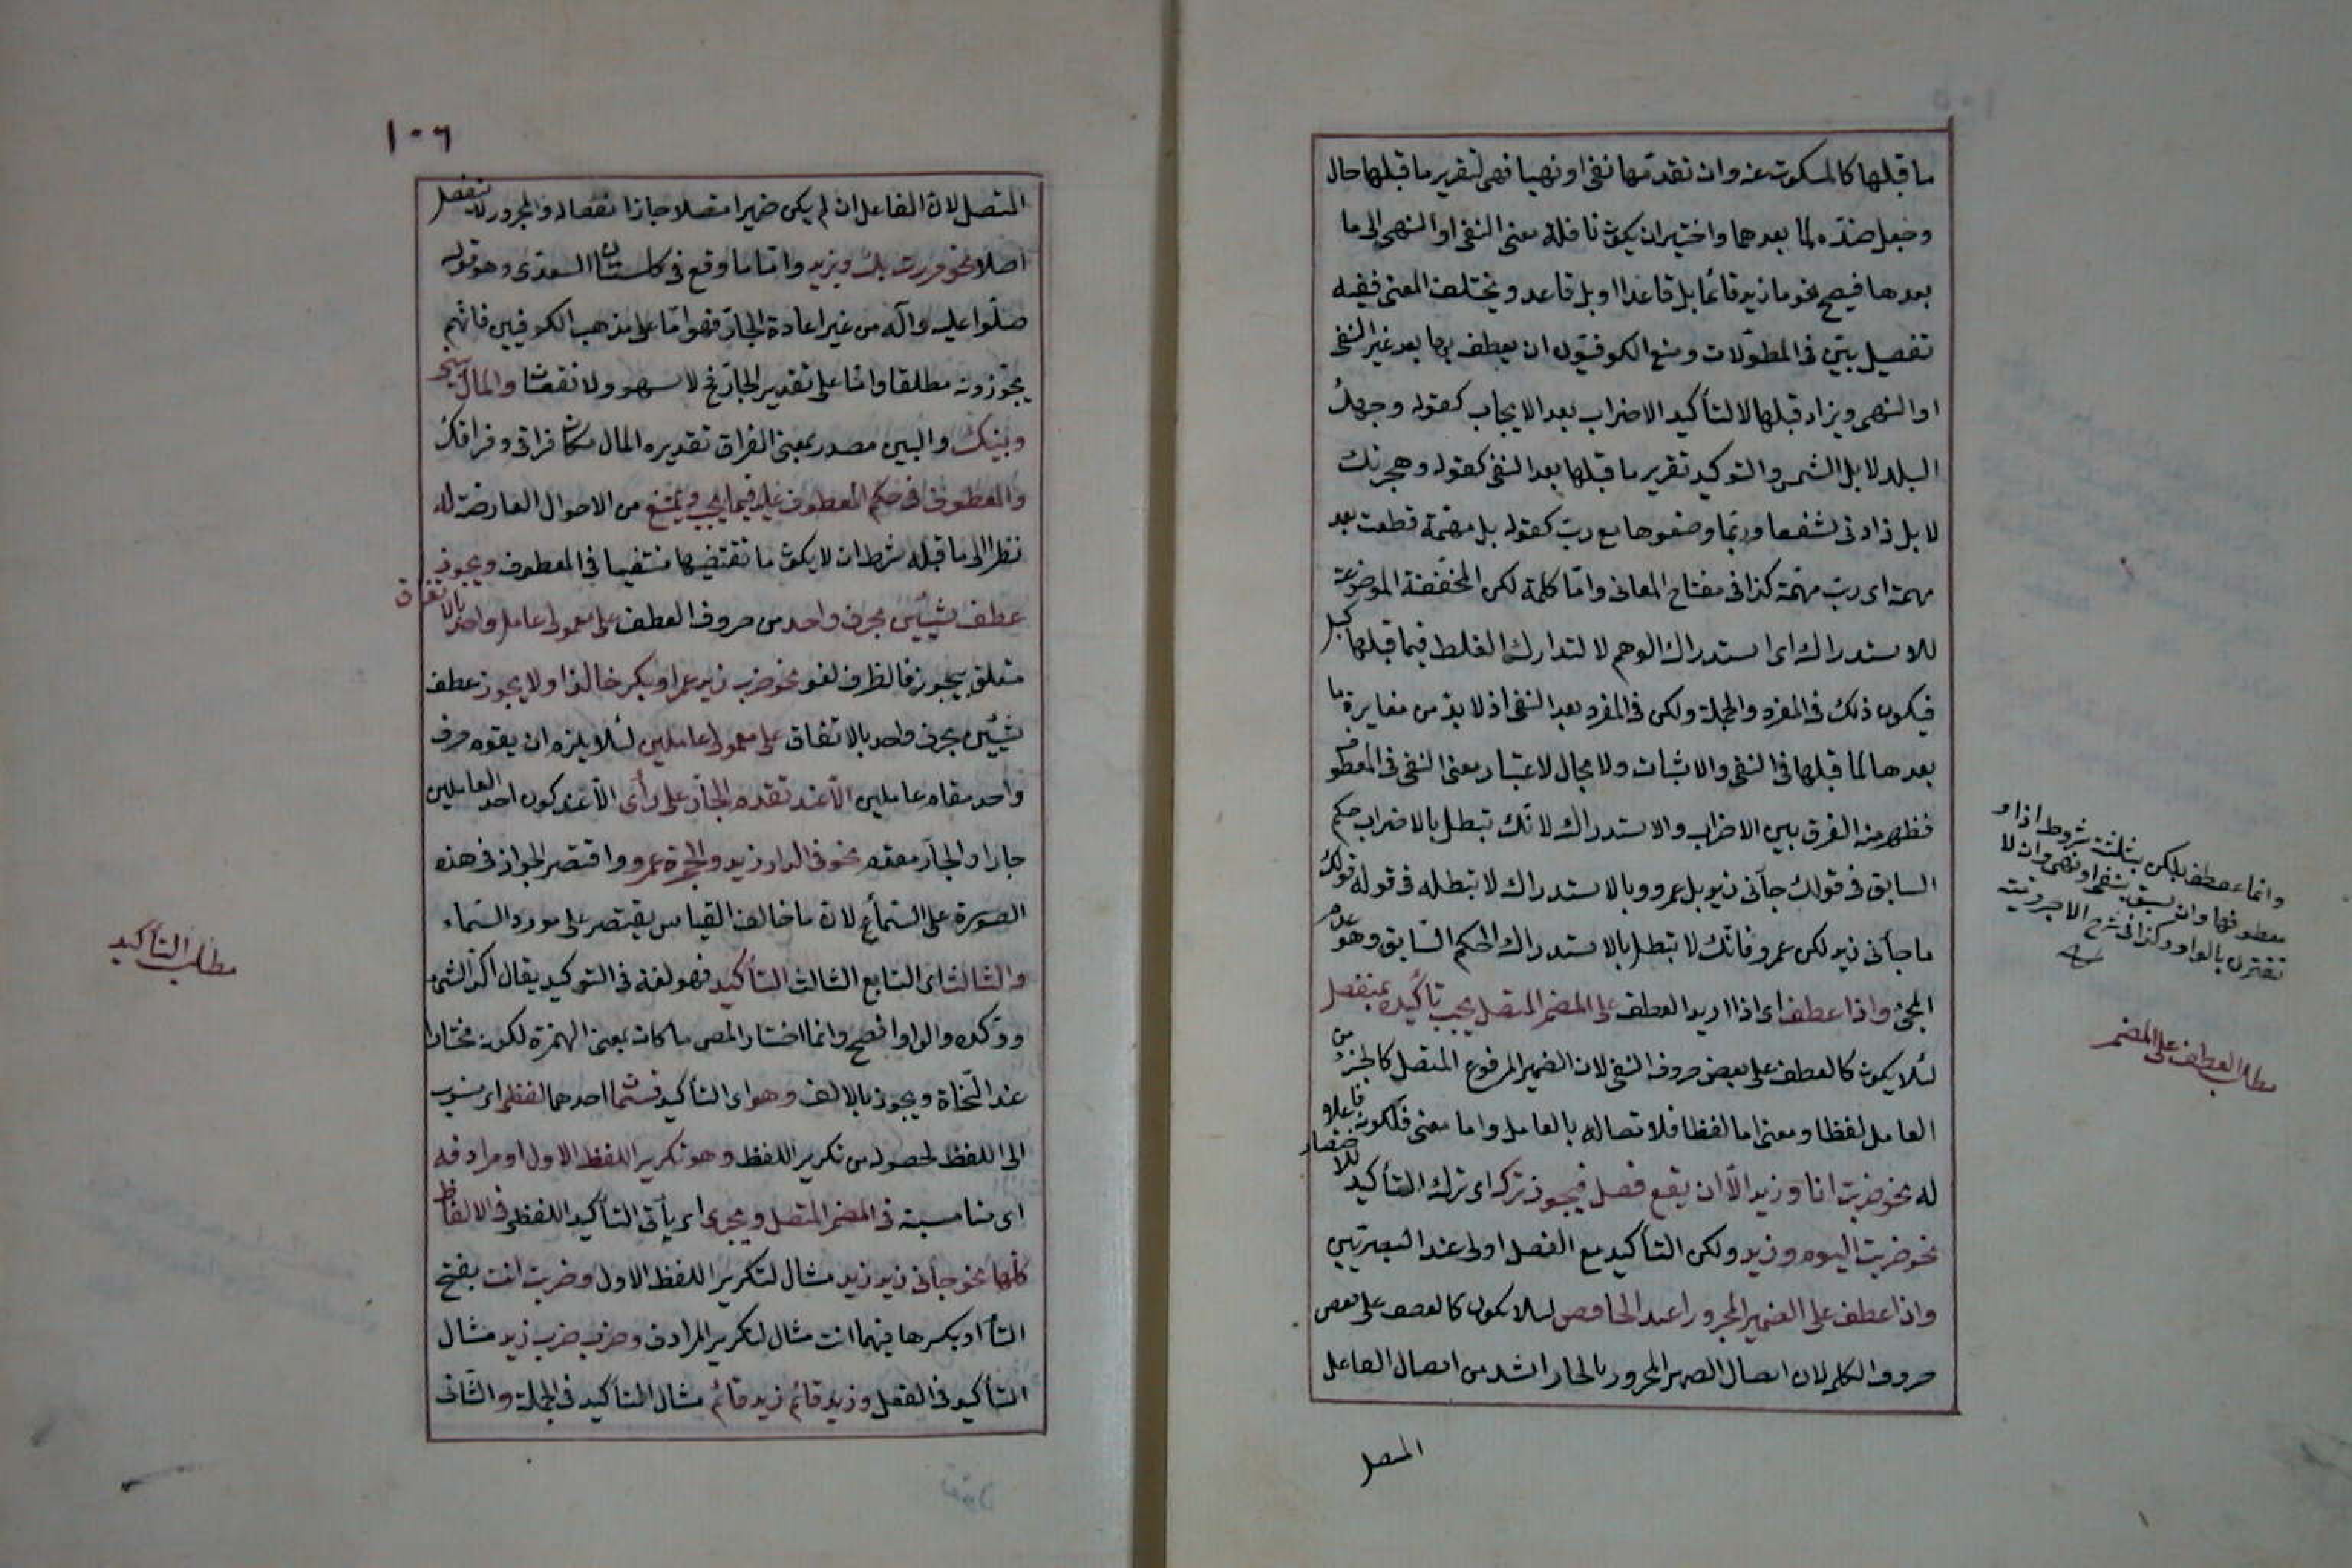 ما قبلها كالمسكوت عنه وان تقدمها نفى او نهى فهى لتقرير ما قبلها حال
وجعل ضده لما بعدها واختير ان يكون ناقلة معنى النفى او النهى الى ما
بعدها فيصح نحو ما زيد قائما بل قاعدا او بل قاعد ويختلف المعنى ففيه
تفصيل بيّن فى المطولات ومنع الكوفيون ان يعطف بها بعد غير النفى
او النهى ويزاد قبلها لا لتأكيد الاضراب بعد الايجاب كقوله وجهك
البدر لا بل الشمس والتوكيد تقرير ما قبلها بعد النفى كقوله وهجرتك
لا بل زادنى شغفا وربما وضعوها مع ربّ كقوله بل مهمة قطعت بعد
مهمة اى ربّ مهمة كذا فى مفتاح المعانى وامّا كلمة لكن المخففة الموضوعة
للاستدراك اى استدراك الوهم لا لتدارك الغلط فيما قبلها
فيكون ذلك فى المفرد والجملة ولكن فى المفرد بعد النفى اذ لا بد من مغايرة ما
بعدها لما قبلها فى النفى والاثبات ولا مجال لاعتبار معنى النفى فى المفرد
فظهر منه الفرق بين الاضراب والاستدراك لانك تبطل بالاضراب حكم
السابق فى قولك جأنى زيد بل عمرو وبالاستدراك لا تبطله فى قوله قولك
ما جأنى زيد لكن عمرو فانك لا تبطل بالاستدراك الحكم السابق وهو عدم
المجئ واذا عطف اى اذا اريد العطف على المضمر المتصل يجب تأكيده بمنفصل
لئلا يكون كالعطف على بعض حروف النفى لان الضمير المرفوع المتصل كالجزء من
العامل لفظا ومعنى اما لفظا فلاتصاله بالعامل واما معنى فلكونه فاعلا
له نحو ضربت انا وزيد الّا ان يقع فصل فيجوز تركه اى ترك التأكيد
نحو ضربت اليوم وزيد ولكن التأكيد مع الفصل اولى عند البصريين
واذا عطف على الضمير المجرور اعيد الخافض لئلا يكون كالعطف على بعض
حروف الكلم لان اتصال الضمير المجرور بالجار اشد من اتصال الفاعل
المتصل
وانما عطف بلكن بثلثة شروط
معطوفها وان يسبق بنفى او نهى وان لا
تقترن بالواو وكذا فى شرح الاجرومية
مطلب العطف على المضمر
١٠٦
المتصل لان الفاعل ان لم يكن ضميرا متصلا جاز انفصاله والمجرور لا ينفصل
اصلا نحو مررت بك وبزيد وامّا ما وقع فى كلستان السعدى وهو قوله
صلّوا عليه وآله من غير اعادة الجارّ فهو امّا على مذهب الكوفيين فانهم
يجوّزونه مطلقا وامّا على تقدير الجارّ فح لا سهو ولا نقصا والمال بينى
وبينك والبين مصدر بمعنى الفراق تقديره المال فراقى وفراقك
والمعطوف فى حكم المعطوف عليه فيما يجب ويمتنع من الاحوال العارضة له
نظرا الى ما قبله بشرط ان لا يكون ما تقتضيها منتفيا فى المعطوف ويجوز
عطف شيئين بحرف واحد من حروف العطف على معمولى عامل واحد بالاتفاق
متعلق بيجوز فالظرف لغو نحو ضرب زيد عمرا وبكر خالدا ولا يجوز عطف
شيئين بحرف واحد بالاتفاق على معمولى عاملين لئلا يلزم ان يقوم حرف
واحد مقام عاملين الّا عند تقدم الجارّ على رأى الّا عند كون احد العاملين
جارا والجارّ مقدم نحو فى الدار زيد والحجرة عمرو واقتصر الجواز فى هذه
الصورة على السماع لان ما خالف القياس يقتصر على مورد السماء
والثالث اى التابع الثالث التأكيد فهو لغة فى التوكيد يقال اكد الشئ
ووكده والواو افصح وانما اختار المص ما كان بمعنى الهمزة لكونه مختارا
عند النحاة ويجوز بالالف وهو اى التأكيد قسمان احدهما لفظى اى منسوب
الى اللفظ لحصوله من تكرير اللفظ وهو تكرير اللفظ الاول او مرادفه
اى مناسبته فى المضمر المتصل ويجرى اى يأتى التأكيد اللفظى فى الالفاظ
كلها نحو جأنى زيد زيد مثال لتكرير اللفظ الاول وضربت انت بفتح
التأ او بكسرها فيهما انت مثال لتكرير المرادف وضرب ضرب زيد مثال
التأكيد فى الفعل وزيد قائم زيد قائم مثال التأكيد فى الجملة والثانى
مطلب التأكيد